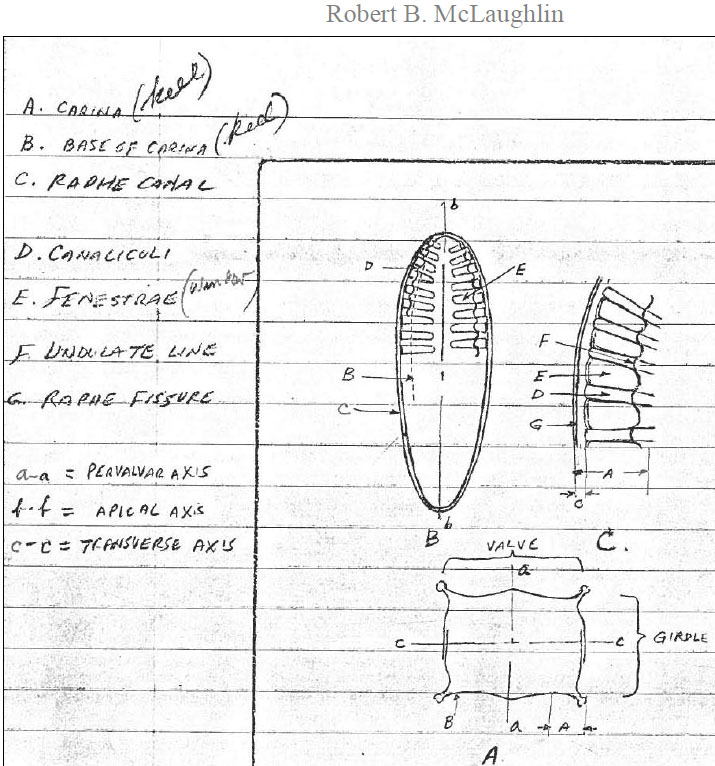 Robert B. McLaughlin
A. CARINA (keel)
B. BASE OF CARINA (keel)
C. RAPHE CANAL
D. CANALICULI
E. FENESTRAE (window)
F. UNDULATE LINE
G. RAPHE FISSURE
a-a = PERVALVAR AXIS
b-b = APICAL AXIS
c-c = TRANSVERSE AXIS
b
D
E
B
C
b
B
F
E
D
G
A
C
C.
VALVE
a
c
c
GIRDLE
B
a
A
A.